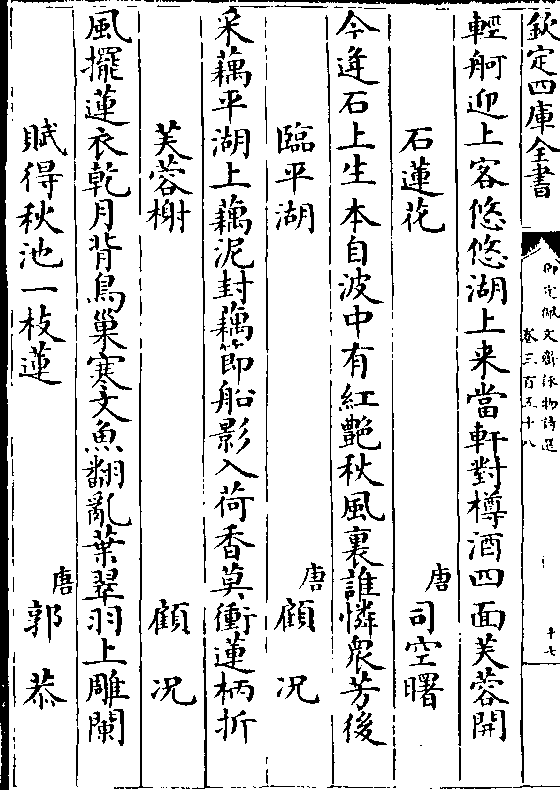 欽定四庫全書
御定佩文齋詠物詩選
卷三百五十八
十七
輕舸迎上客悠悠湖上来當軒對樽酒四面芙蓉開
石蓮花
唐
司空曙
今逢石上生本自波中有紅艶秋風裏誰憐衆芳後
臨平湖
唐
顧况
采藕平湖上藕泥封藕節船影入荷香莫衝蓮柄折
芙蓉榭
顧况
風擺蓮衣乾月背鳥巢寒文魚翻亂葉翠羽上雕闌
賦得秋池一枝蓮
唐
郭恭